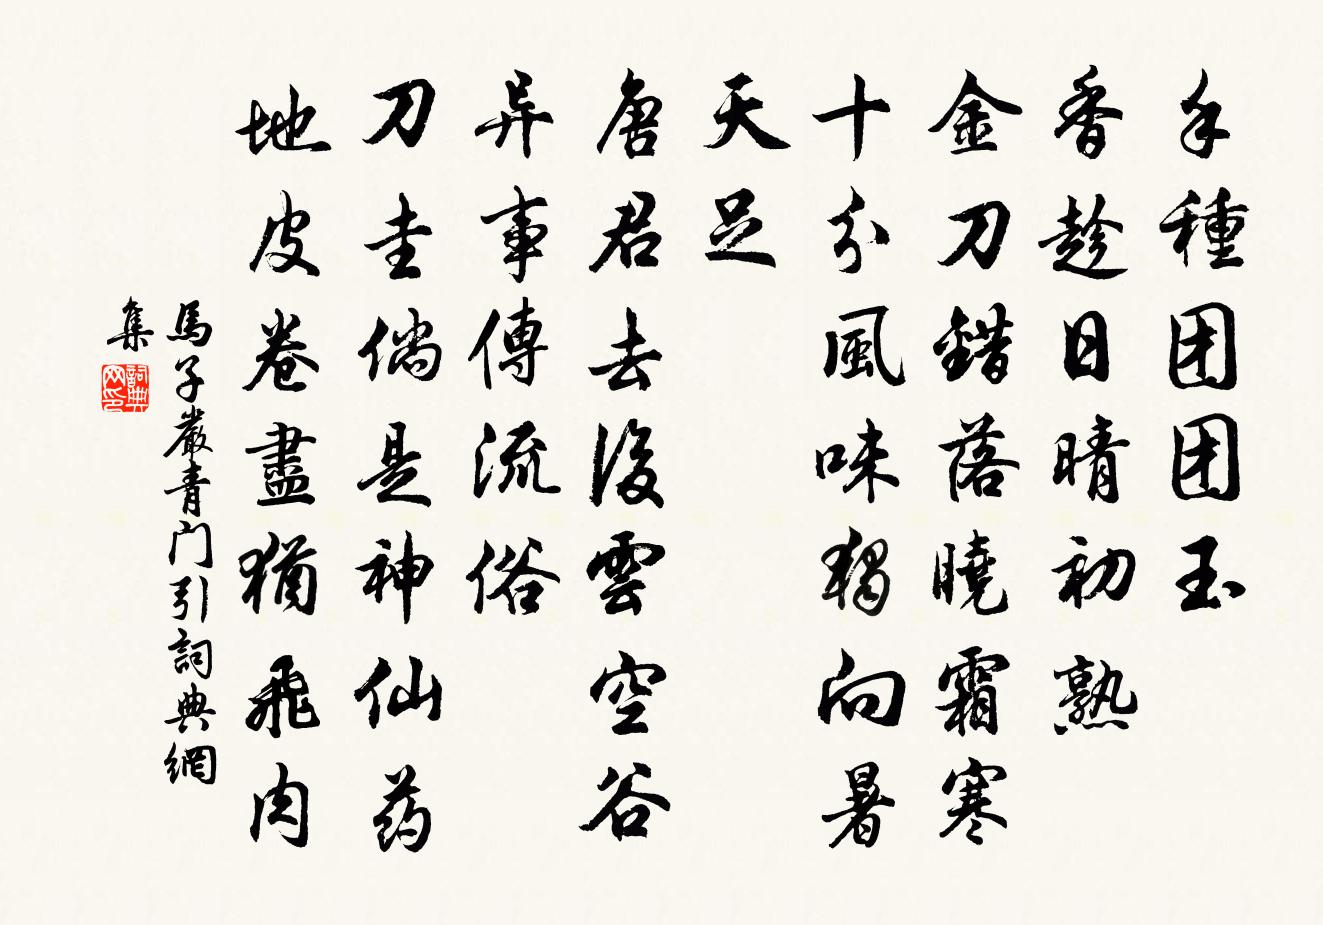 手種团团玉
香趁日晴初熟
金刀錯落曉霜寒
十分風味獨向暑
天足
唐君去後雲空谷
异事傳流俗
刀圭倘是神仙药
地皮卷盡猶飛肉
馬子嚴青門引詞典網
集
詞典
网印